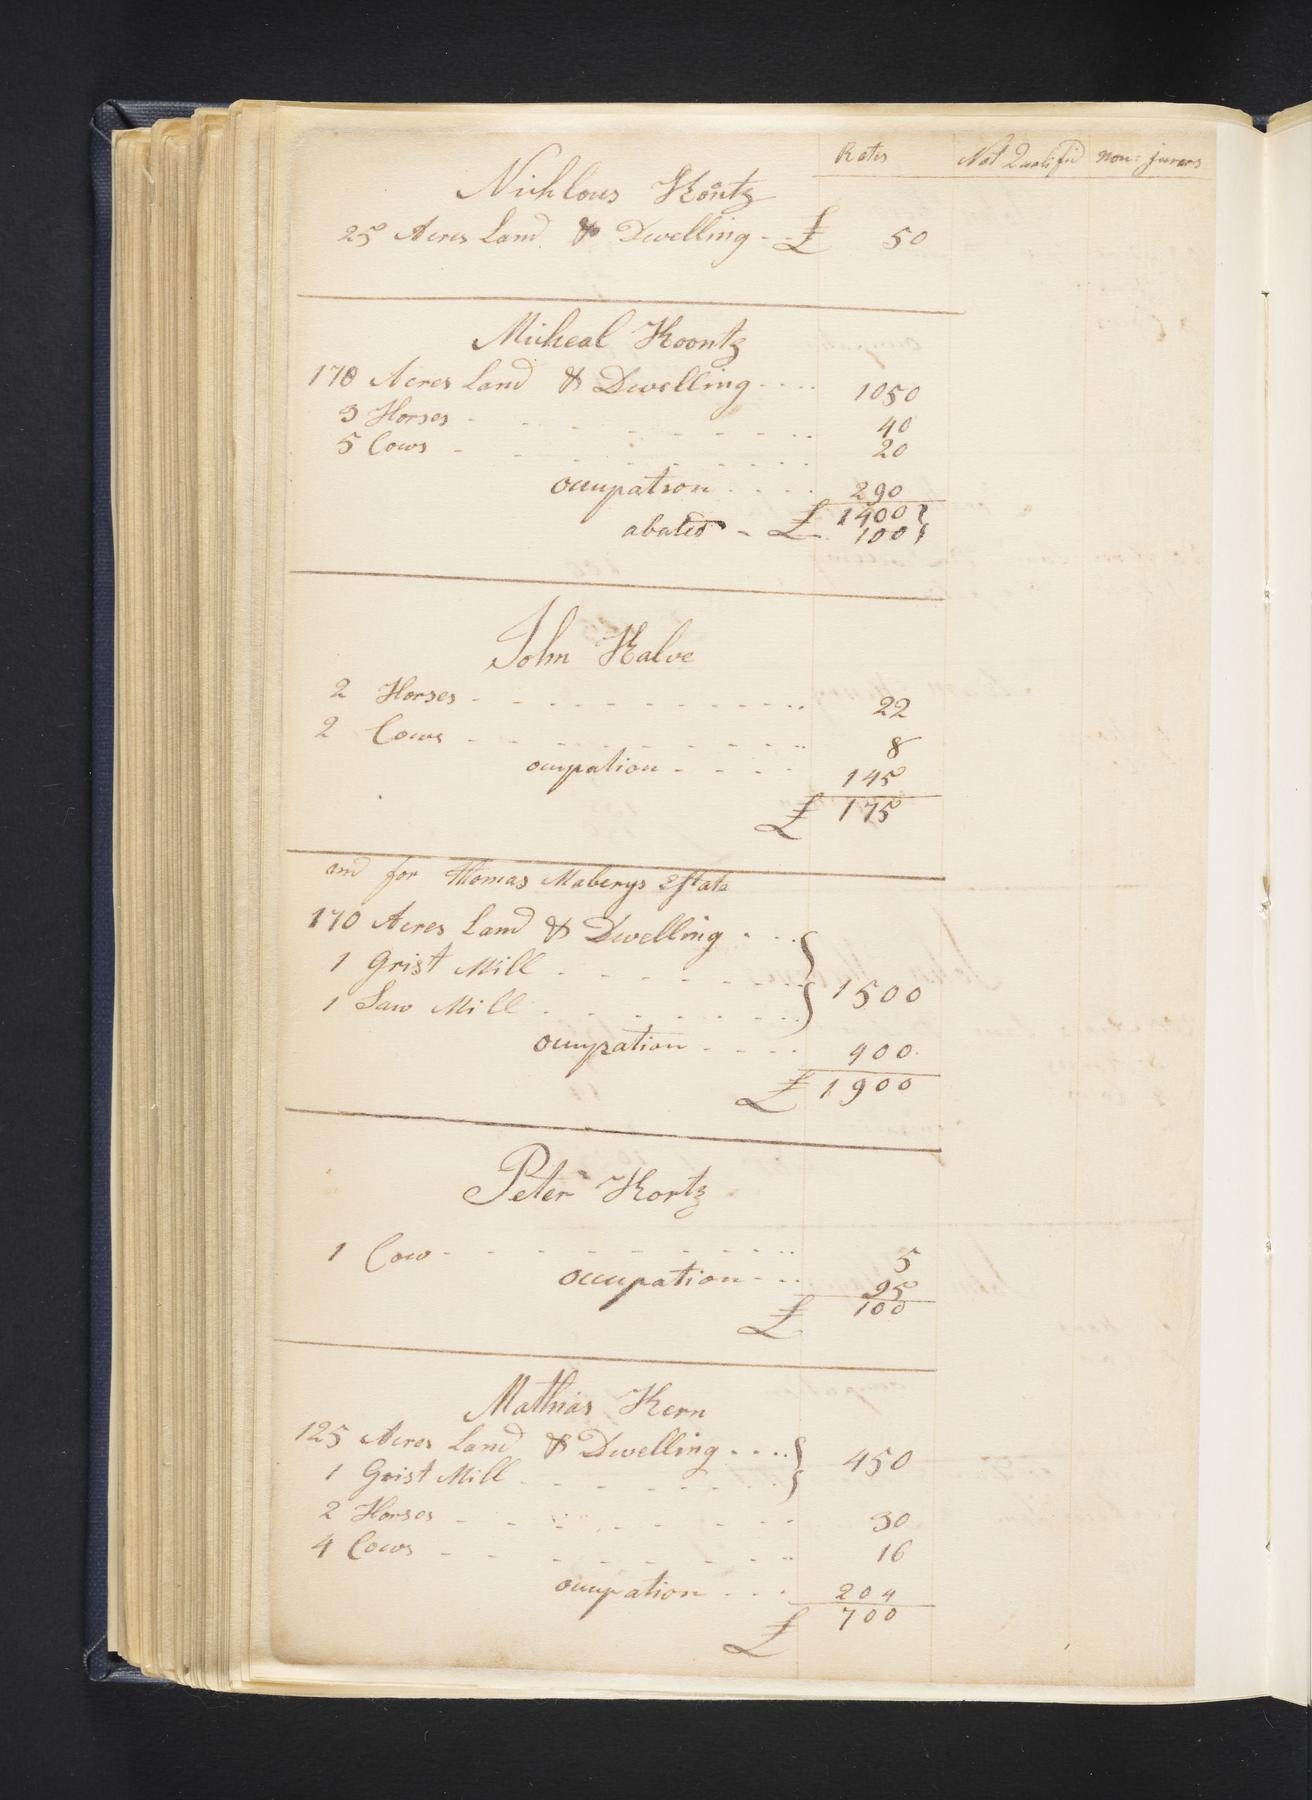 Rates Not Qualifid non: jurers
Nichlous Kontz
25 Acres Land & Dwelling - - £ 50
Micheal Koontz
170 Acres Land & Dwelling - - - - 1050
3 Horses - - - - - - - - - 40
5 Cows - - - - - - - - - 20
occupation - - - - 290
£ 1400
abated - 100
John Kalve
2 Horses - - - - - - - - - - - 22
2 Cows - - - - - - - - - - 8
ocupation - - - - 145
£ 175
and for Thomas Maberys Estate
170 Acres Land & Dwelling - - -
1 Grist Mill - - - - - - -
1500
1 Saw Mill - - - - - - -
ocupation - - - - 400
£ 1900
Peter Kortz
1 Cow - - - - - - - - - 5
occupation - - - 95
£ 100
Mathias Kern
125 Acres Land & Dwelling - - - -
450
1 Grist Mill - - - - - - -
2 Horses - - - - - - - - 30
4 Cows - - - - - - - - 16
ocupation - - - 204
£ 700